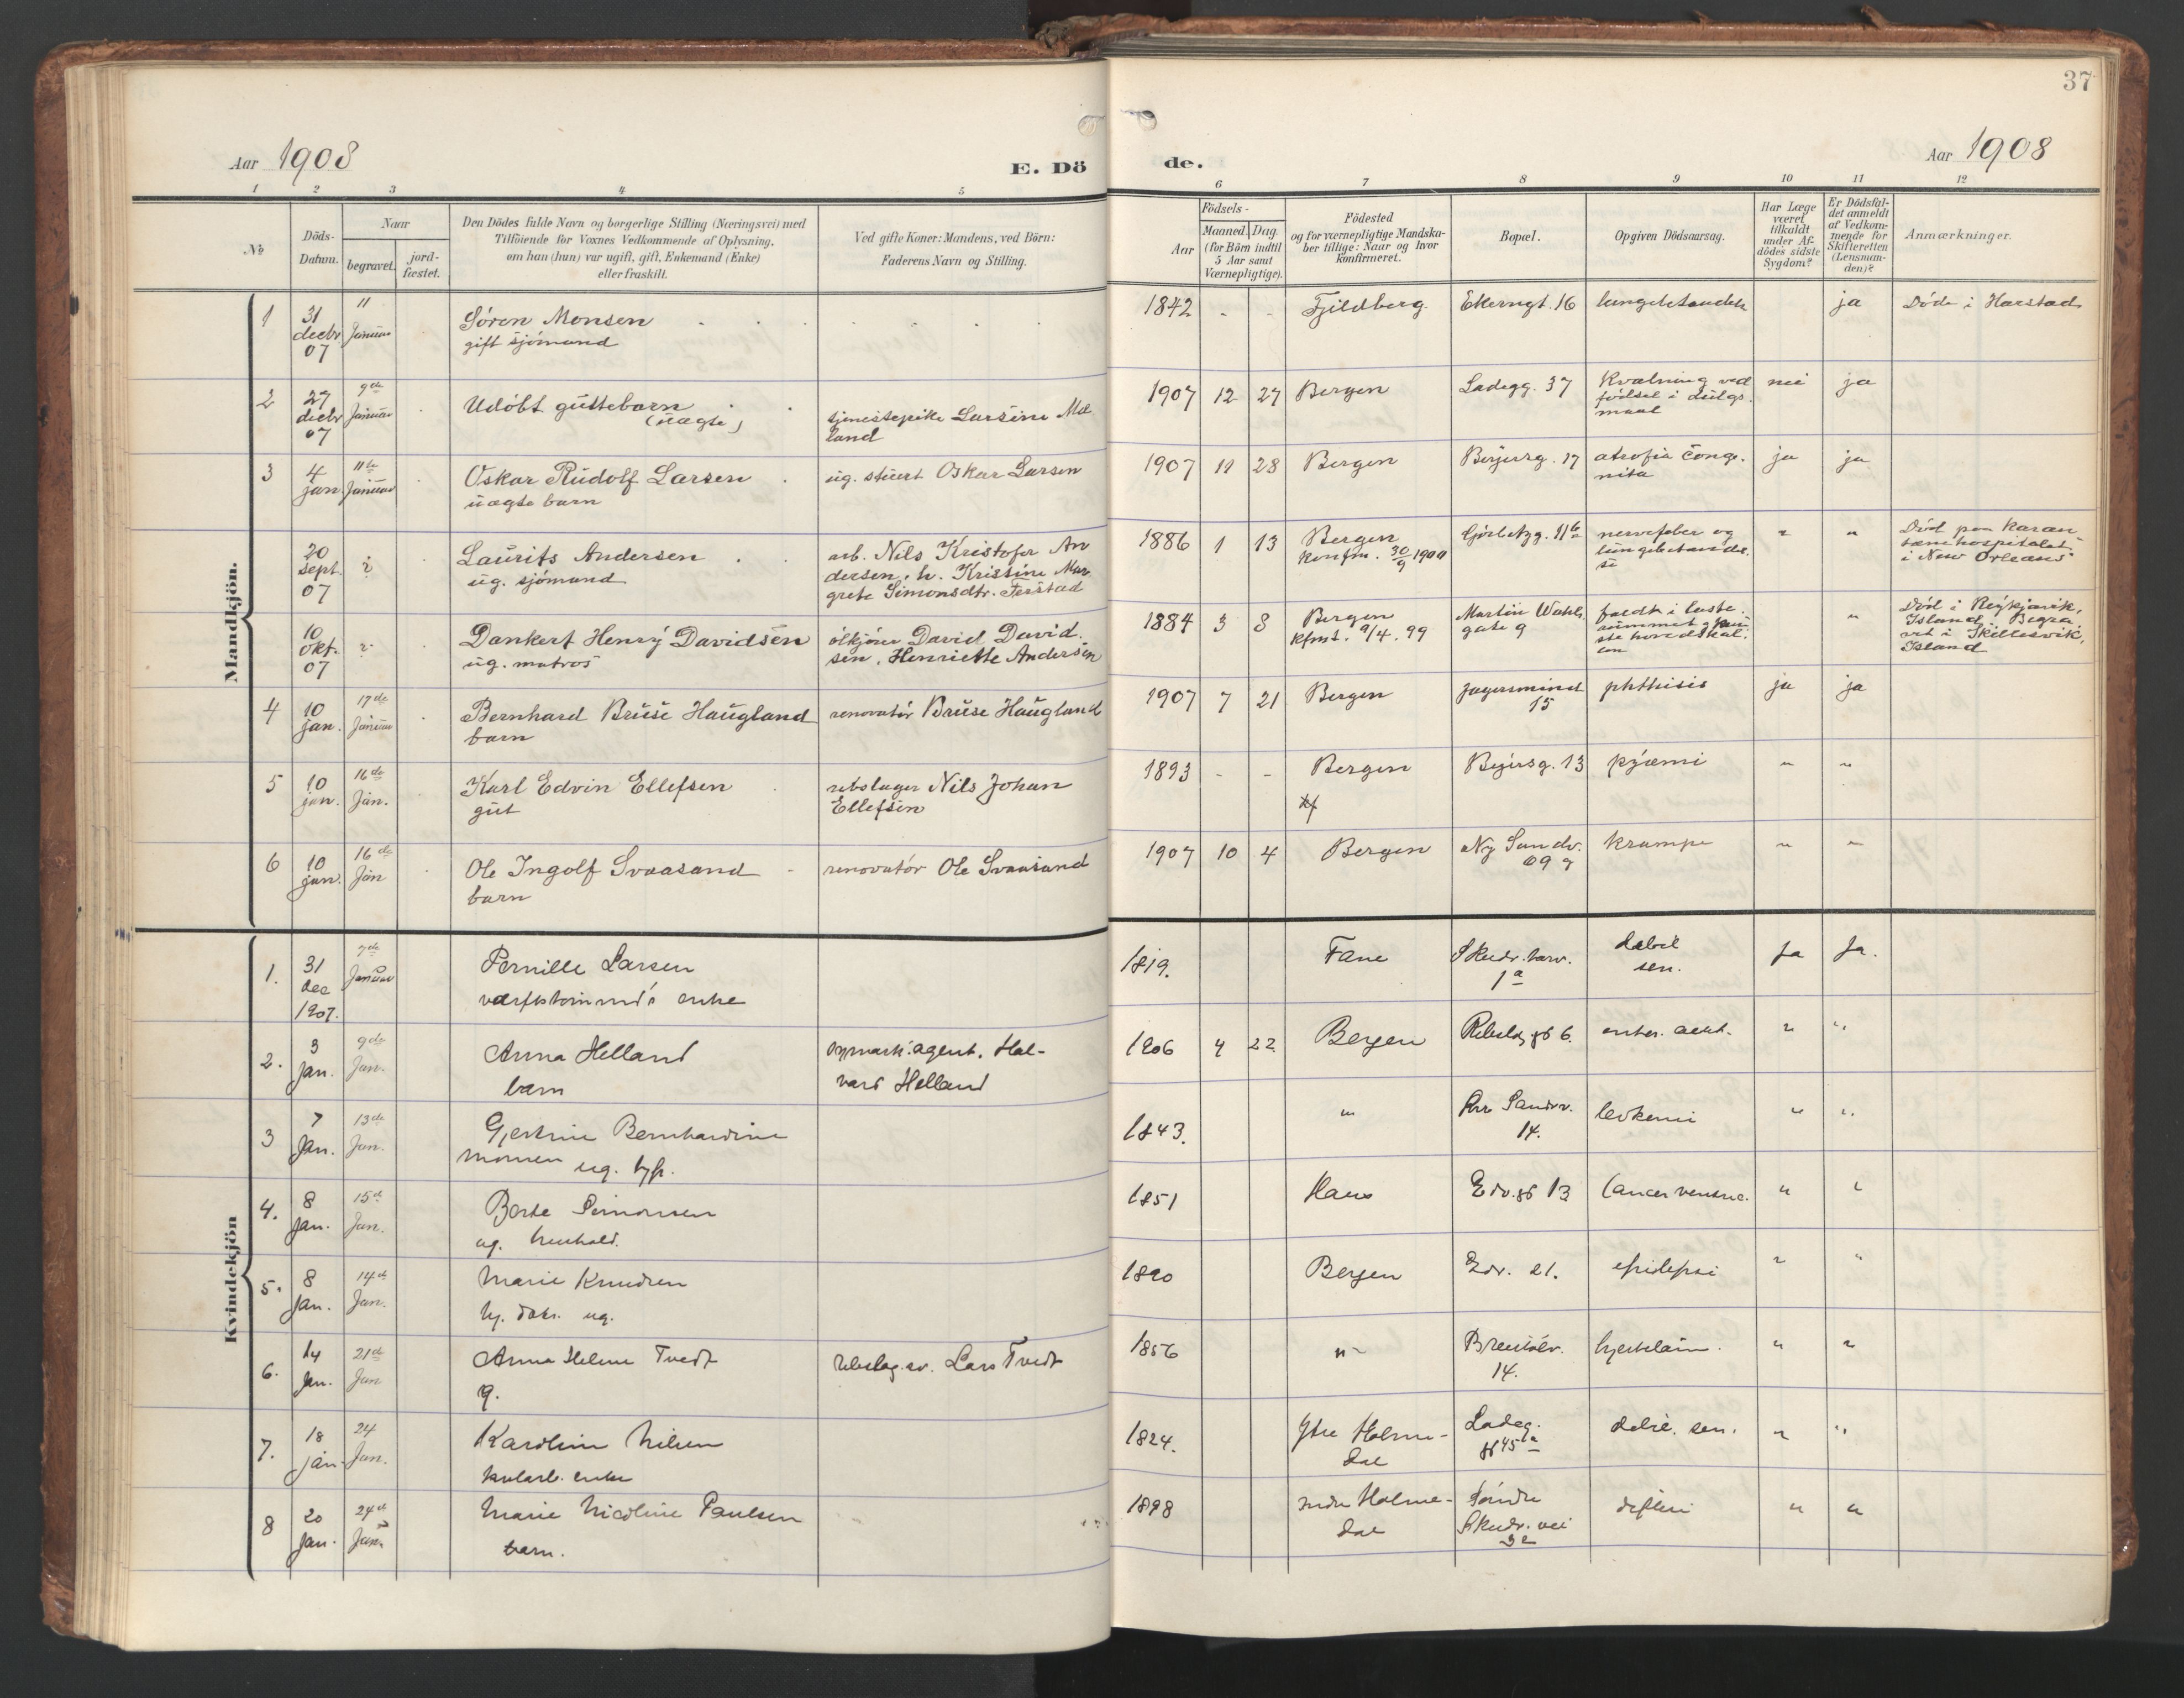 37
Aar 1908
E. Dö
de.
Aar 1908
1 2 3 4 5 6 7 8 9 10 11 12
No
Döds-Datum.
Naar
begravet.
jord-fæstet.
Den Dödes fulde Navn og borgerlige Stilling (Næringsvei) med
Tilföiende for Voxnes Vedkommende af Oplysning,
om han (hun) var ugift, gift, Enkemand (Enke)
eller fraskilt.
Ved gifte Koner: Mandens, ved Börn:
Faderens Navn og Stilling.
Födsels-
Aar
Maaned. Dag.
(for Börn indtil
5 Aar samt
Værnepligtige).
Födested
og for værnepligtige Mandska-
ber tillige: Naar og hvor
konfirmeret.
Bopæl.
Opgiven Dödsaarsag.
Har Læge
været
tilkaldt
under Af-
dödes sidste
Sygdom?
Er Dödsfal-
det anmeldt
af Vedkom-
mende for
Skifteretten
(Lensman-
den)?
Anmærkninger.
Mandkjön.
1 31 decbr 07 11 Januar Sören Monsen gift sjömand 1842 - - Fjeldberg Ekerngt. 16 ja Döde i Harstad
2 27 decbr 07 9de Januar Udöbt guttebarn (uægte) tjenestepike Larsine Mæ- land 1907 12 27 Bergen Ladegg. 37 Kvælning ved födsel i dulgs- maal nei ja
3 4 jan. 11te Januar Oskar Rudolf Larsen uægte barn ug. stuert Oskar Larsen 1907 11 28 Bergen 17 atrofia conge- nita ja ja
20 sept. 07 ? Laurits Andersen ug. sjömand arb. Nils Kristofer An dersen, h. Kristine Mar grete Simonsdtr. 1886 1 13 Bergen Konfm. 30/9 1900 nervefeber og lungebetændel- se " " Död paa Karan- tænehospitalet i New Orleans
10 okt. 07 ? Dankert Henry Davidsen ug. matros ölkjörer David David- sen, Henriette Andersen 1884 3 8 Bergen kfmt. 9/4. 99 Martin Wahls gate 9 " Död i Reykjavik, Island. Begra- vet i Island
4 10 jan. 17de Januar Bernhard Bruse Haugland barn renovatör Bruse Haugland 1907 7 21 Bergen 15 phthisis ja ja
5 10 jan. 16de Jan. Karl Edvin Ellefsen gut rebslager Nils Johan Ellefsen 1893 - - Bergen 13 pyæmi " "
6 10 jan. 16de Jan Ole Ingolf Svaasand barn renovatör Ole Svaasand 1907 10 4 Bergen Ny Sandv. 09 krampe " "
Kvindekjön
1. 31 dec 1907. 7de Januar Pernille Larsen enke 1819. Fane Skudr. 1a debil sen. ja ja.
2. 3 Jan. 9de Jan. Anna Helland barn agent. Hal- vard Helland 1906 4 22 Bergen 6. enter. acut. " "
3 7 Jan. 13de Jan. Gjertrine Bernhardine Monsen ug. 1843. " Sandv. 14. levkemi " "
4. 8 Jan. 15de Jan. Berte Simonsen ug. hushold. 1851 Haus 13 Cancer ventric. " "
5. 8 Jan. 14de Jan. Marie Knudsen ug. 1890 Bergen 21. epilepsi " "
6. 14 Jan. 21de Jan Anna Helene Tvedt g. rebslag.sv. Lars Tvedt 1856 " 14. " "
7. 18 jan. 24 Jan. Karoline Nilsen enke 1824. Ytre Holme- dal Ladeg. 45 sen. " "
8 20 Jan. 24de Jan. Marie Nicoline Paulsen barn. 1898 Indre Holme- dal Söndre Skudr. vei 32 difteri " "